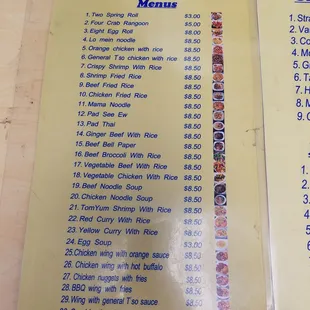 Menus
1. Two Spring Roll $3.00
2. Four Crab Rangoon $5.00
3. Eight Egg Roll $8.00
4. Lo mein noodle $8.50
5. Orange chicken with rice $8.50
6. General T so chicken with rice $8.50
7. Crispy Shrimp With Rice $8.50
8. Shrimp Fried Rice $8.50
9. Beef Fried Rice $8.50
10. Chicken Fried Rice $8.50
11. Mama Noodle $8.50
12. Pad See Ew $8.50
13. Pad Thai $8.50
14. Ginger Beef With Rice $8.50
15. Beef Bell Paper $8.50
16. Beef Broccoli With Rice $8.50
17. Vegetable Beef With Rice $8.50
18. Vegetable Chicken With Rice $8.50
19. Beef Noodle Soup $8.50
20. Chicken Noodle Soup $8.50
21. TomYum Shrimp With Rice $8.50
22. Red Curry With Rice $8.50
23. Yellow Curry With Rice $8.50
24. Egg Soup $3.00
25. Chicken wing with orange sauce $8.50
26. Chicken wing with hot buffalo $8.50
27. Chicken nuggets with fries $8.50
28. BBQ wing with fries $8.50
29. Wing with general T so sauce $8.50
1. Stra
2. Va
3. Co
4. Me
5. G
6. Ta
7. H
8. M
9. C
1.
2.
3.
4.
5.
6.
7.